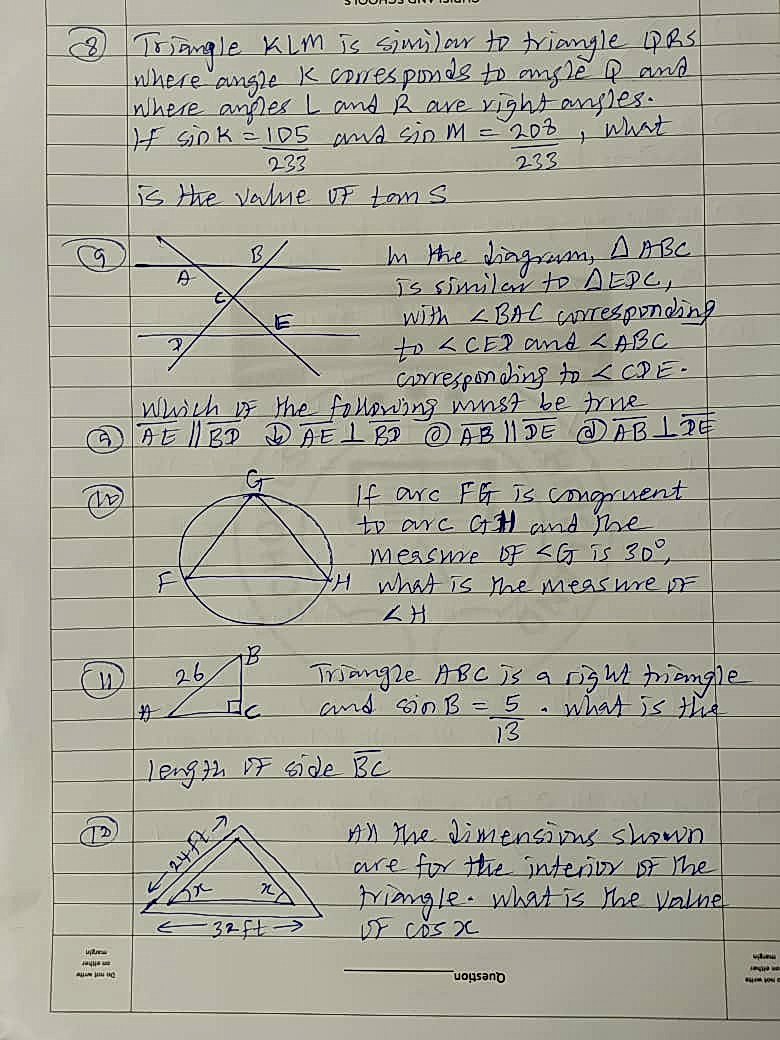 8 Triangle KLM is similar to triangle QRS
where angle K corresponds to angle Q and
where angles L and R are right angles.
If sin K = 105/233 and sin M = 208/233, what
is the value of tan S
9 A B C D E
In the diagram, Δ ABC
is similar to ΔEDC,
with <BAC corresponding
to <CED and <ABC
corresponding to <CDE.
Which of the following must be true
a AE || BD b AE ⊥ BD c AB || DE d AB ⊥ DE
10 G F H
If arc FG is congruent
to arc GH and the
measure of <G is 30°,
what is the measure of
<H
11 26 B A C
Triangle ABC is a right triangle
and sin B = 5/13. what is the
length of side BC
12 24ft x x 32ft
All the dimensions shown
are for the interior of the
triangle. what is the value
of cos x
Question
Do not write
on either
margin
Do not write
on either
margin